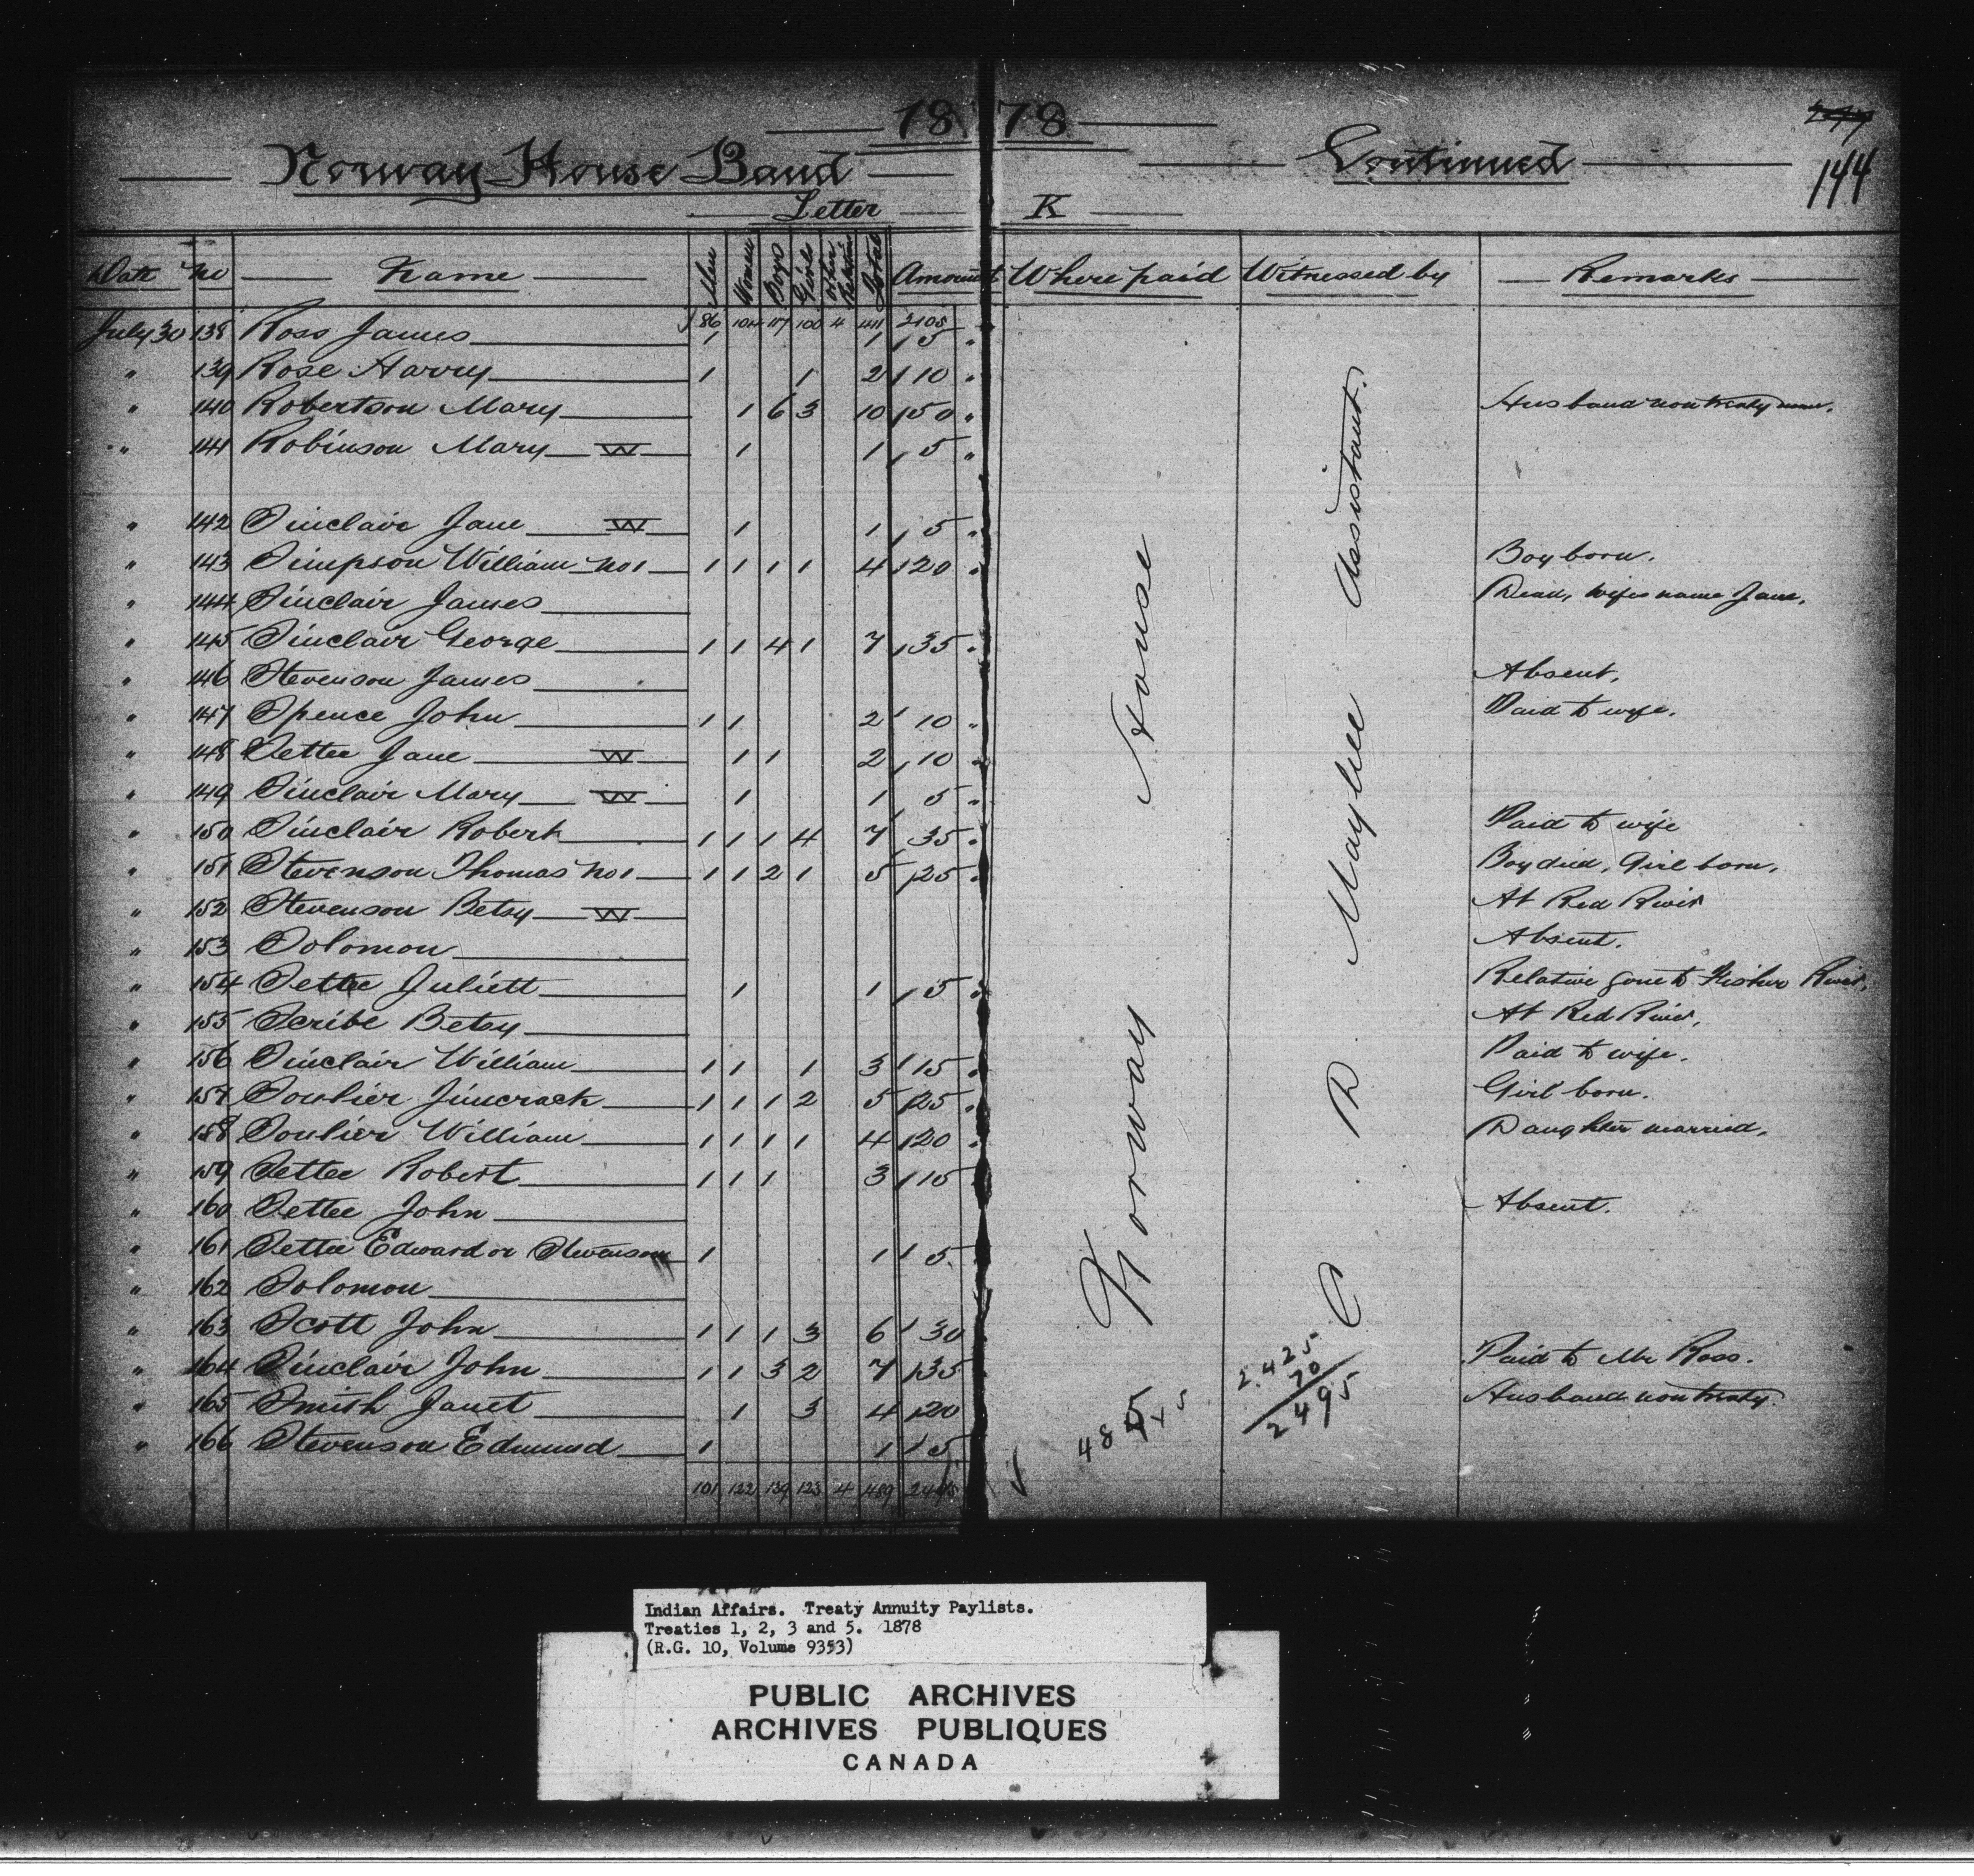 1878
Norway House Band Continued
144
Letter K
Date No Name Men Women Boys Girls Other Relatives Total Amount Where paid Witnessed by Remarks
86 104 117 100 4 411 2105
July 30 138 Ross James 1 1 5
" 139 Rose Harry 1 1 2 10
" 140 Robertson Mary 1 6 3 10 50 Husband non treaty man.
" 141 Robinson Mary W 1 1 5
" 142 Sinclair Jane W 1 1 5
" 143 Simpson William No 1 1 1 1 1 4 20 Boy born.
" 144 Sinclair James Dead, wifes name Jane.
" 145 Sinclair George 1 1 4 1 7 35
" 146 Stevenson James Absent.
" 147 Spence John 1 1 2 10 Paid to wife.
" 148 Settee Jane W 1 1 2 10
" 149 Sinclair Mary W 1 1 5
" 150 Sinclair Robert 1 1 1 4 7 35 Paid to wife
" 151 Stevenson Thomas No 1 1 1 2 1 5 25 Boy died, Girl born.
" 152 Stevenson Betsy W At Red River
" 153 Solomon Absent.
" 154 Settee Juliett 1 1 5 Relative gone to Fisher River.
" 155 Scribe Betsy At Red River.
" 156 Sinclair William 1 1 1 3 15 Paid to wife.
" 157 Soulier Jimcrack 1 1 1 2 5 25 Girl born.
" 158 Soulier William 1 1 1 1 4 20 Daughter married.
" 159 Settee Robert 1 1 1 3 15
" 160 Settee John Absent.
" 161 Settee Edward or Stevenson 1 1 5
" 162 Solomon
" 163 Scott John 1 1 1 3 6 30
" 164 Sinclair John 1 1 3 2 7 35 Paid to Mr Ross.
" 165 Smith Janet 1 3 4 20 Husband non treaty.
" 166 Stevenson Edmund 1 1 5
101 122 139 123 4 489
Norway House
C. D. Maybee Assistant.
2.425
70
2495
Indian Affairs. Treaty Annuity Paylists.
Treaties 1, 2, 3 and 5. 1878
(R.G. 10, Volume 9353)
PUBLIC ARCHIVES
ARCHIVES PUBLIQUES
CANADA